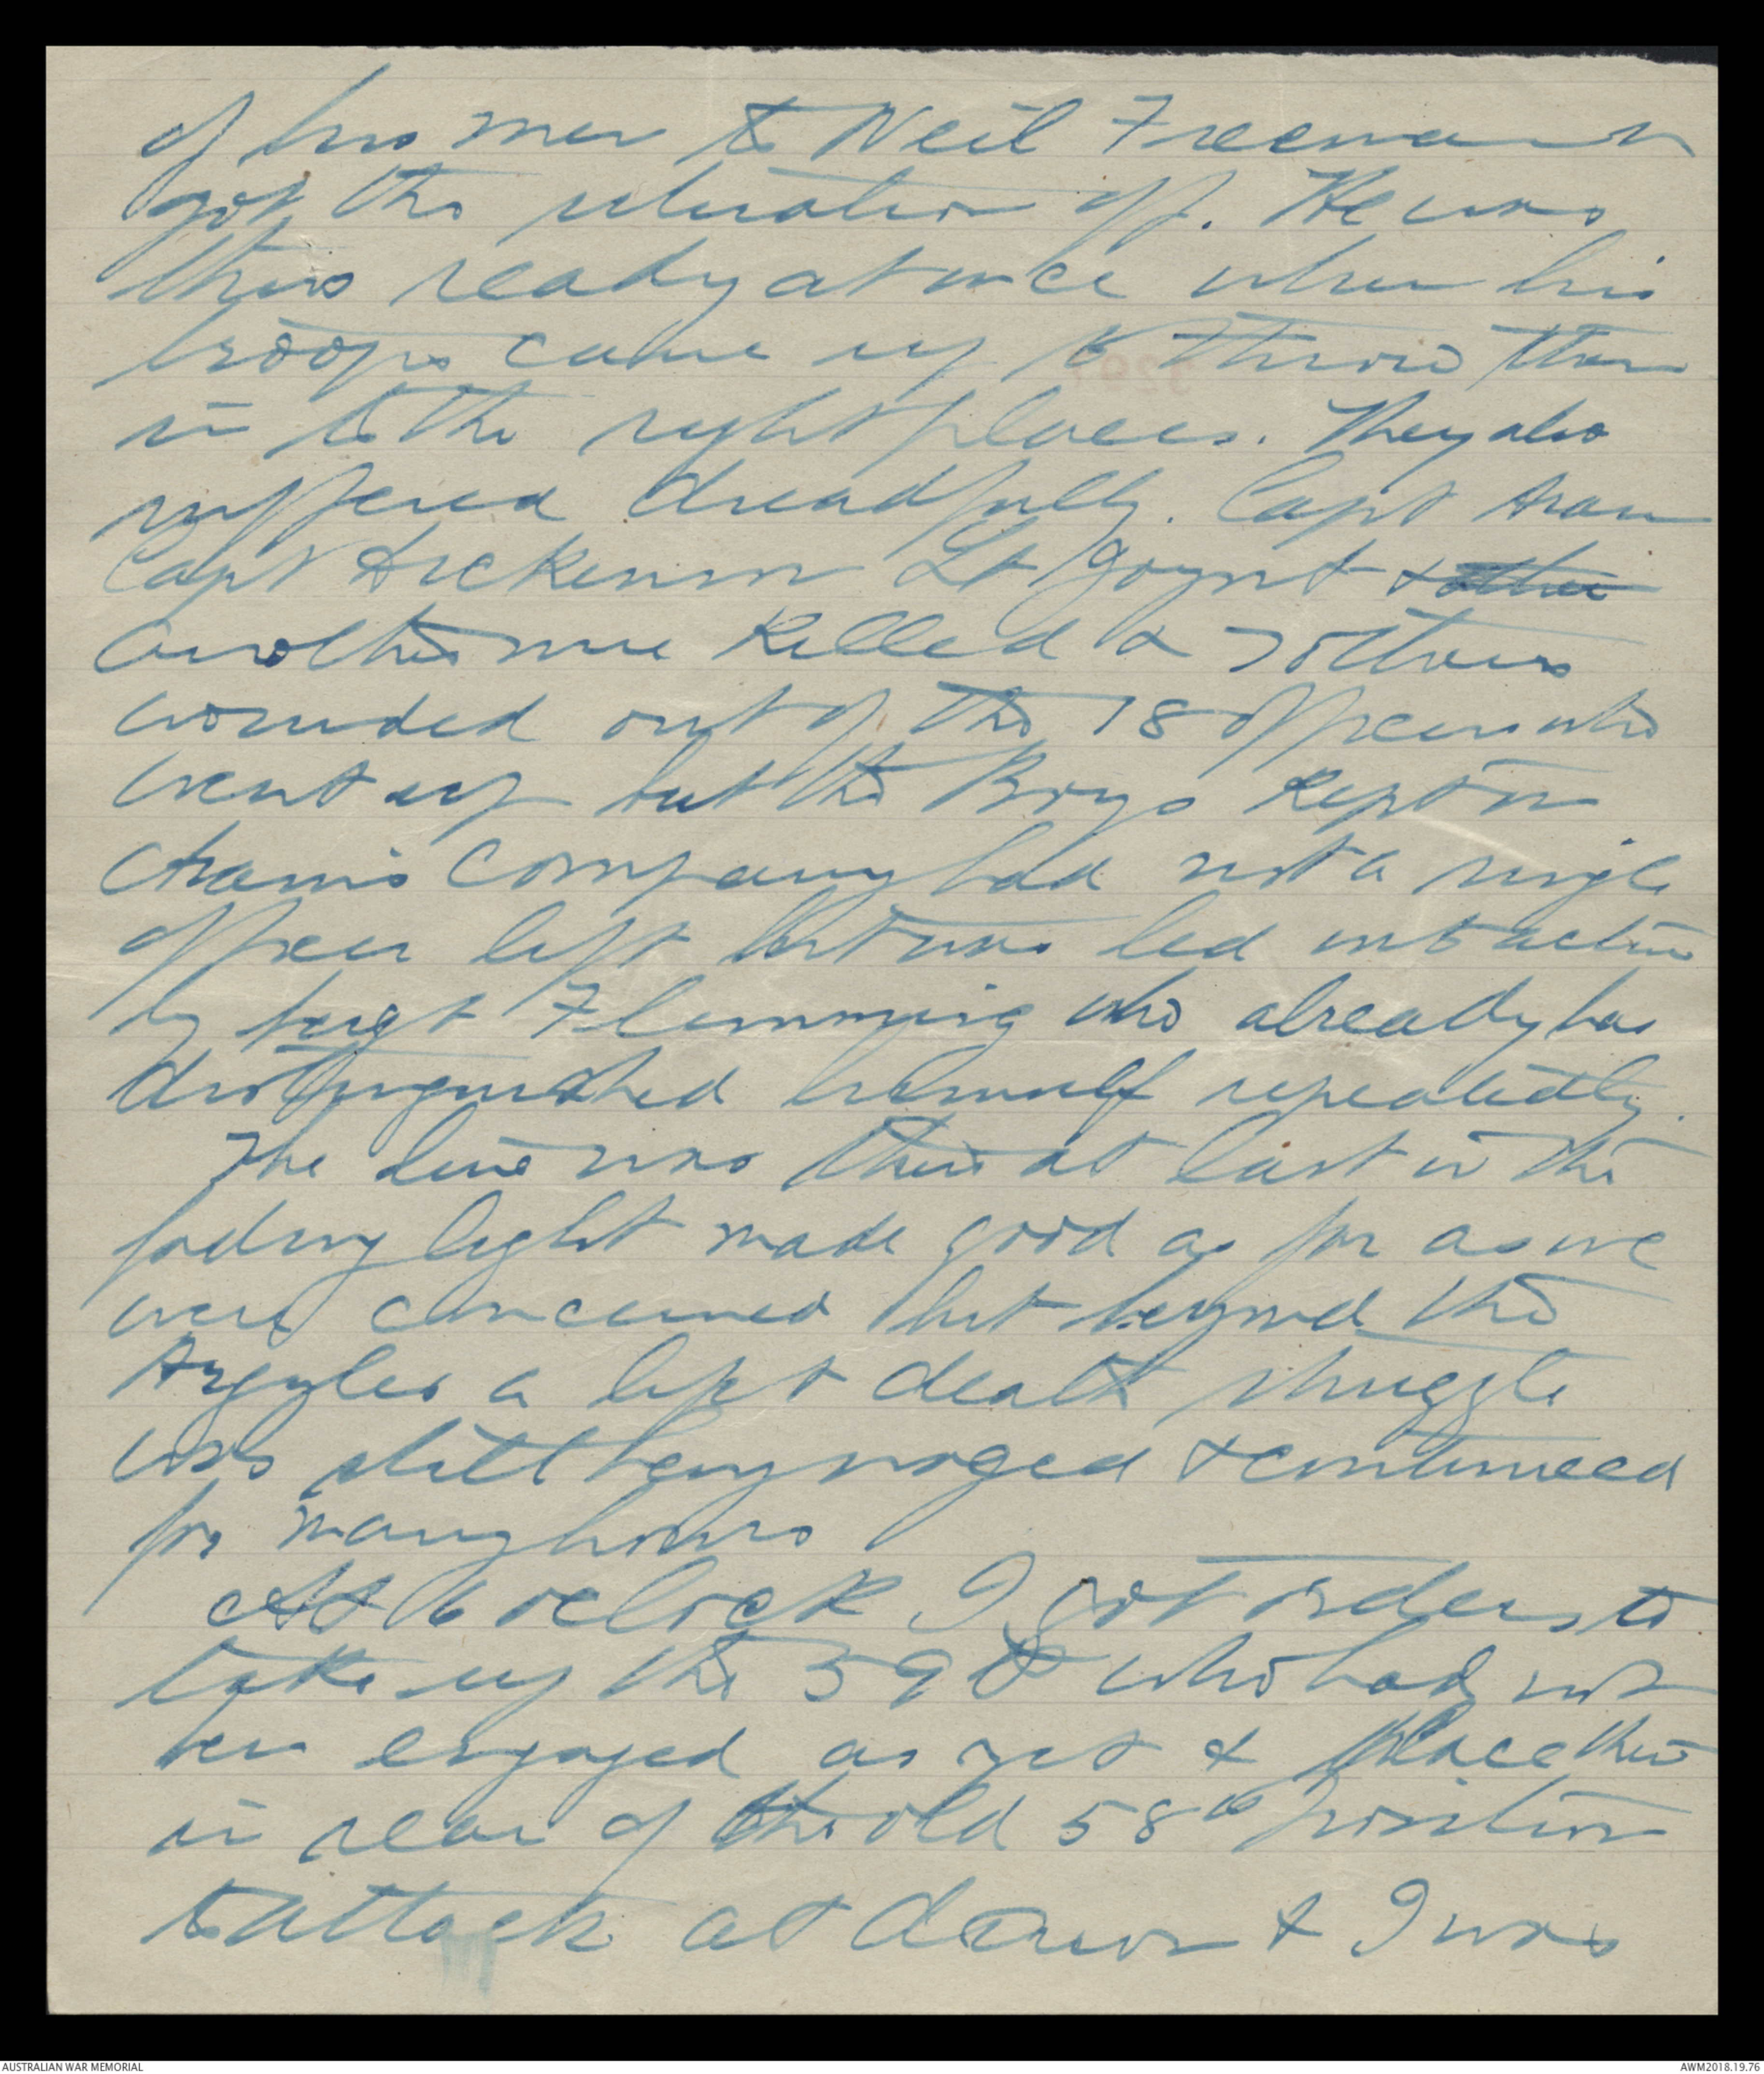 of his men to Neil Freeman
got the situation off. He was
thus ready at once when his
troops came up to throw them
in to the right places. They also
suffered dreadfully. Capt Aram
Capt Dickinson Lt Joynt & other
another were killed & 7 others
wounded out of the 18 officers who
went up but the Boys kept on
Aram's Company had not a single
officer left but was led into action
by Sergt Flemming who already has
distinguished himself repeatedly.
The line was thus at last in the
fading light made good as far as we
were concerned but beyond the
Argyles a life & death struggle
was still being waged & continued
for many hours
At 6 oclock I got orders to
take up the 59th who had not
been engaged as yet & place them
in rear of the old 58th position
to attack at dawn & I was
AUSTRALIAN WAR MEMORIAL
AWM2018.19.76